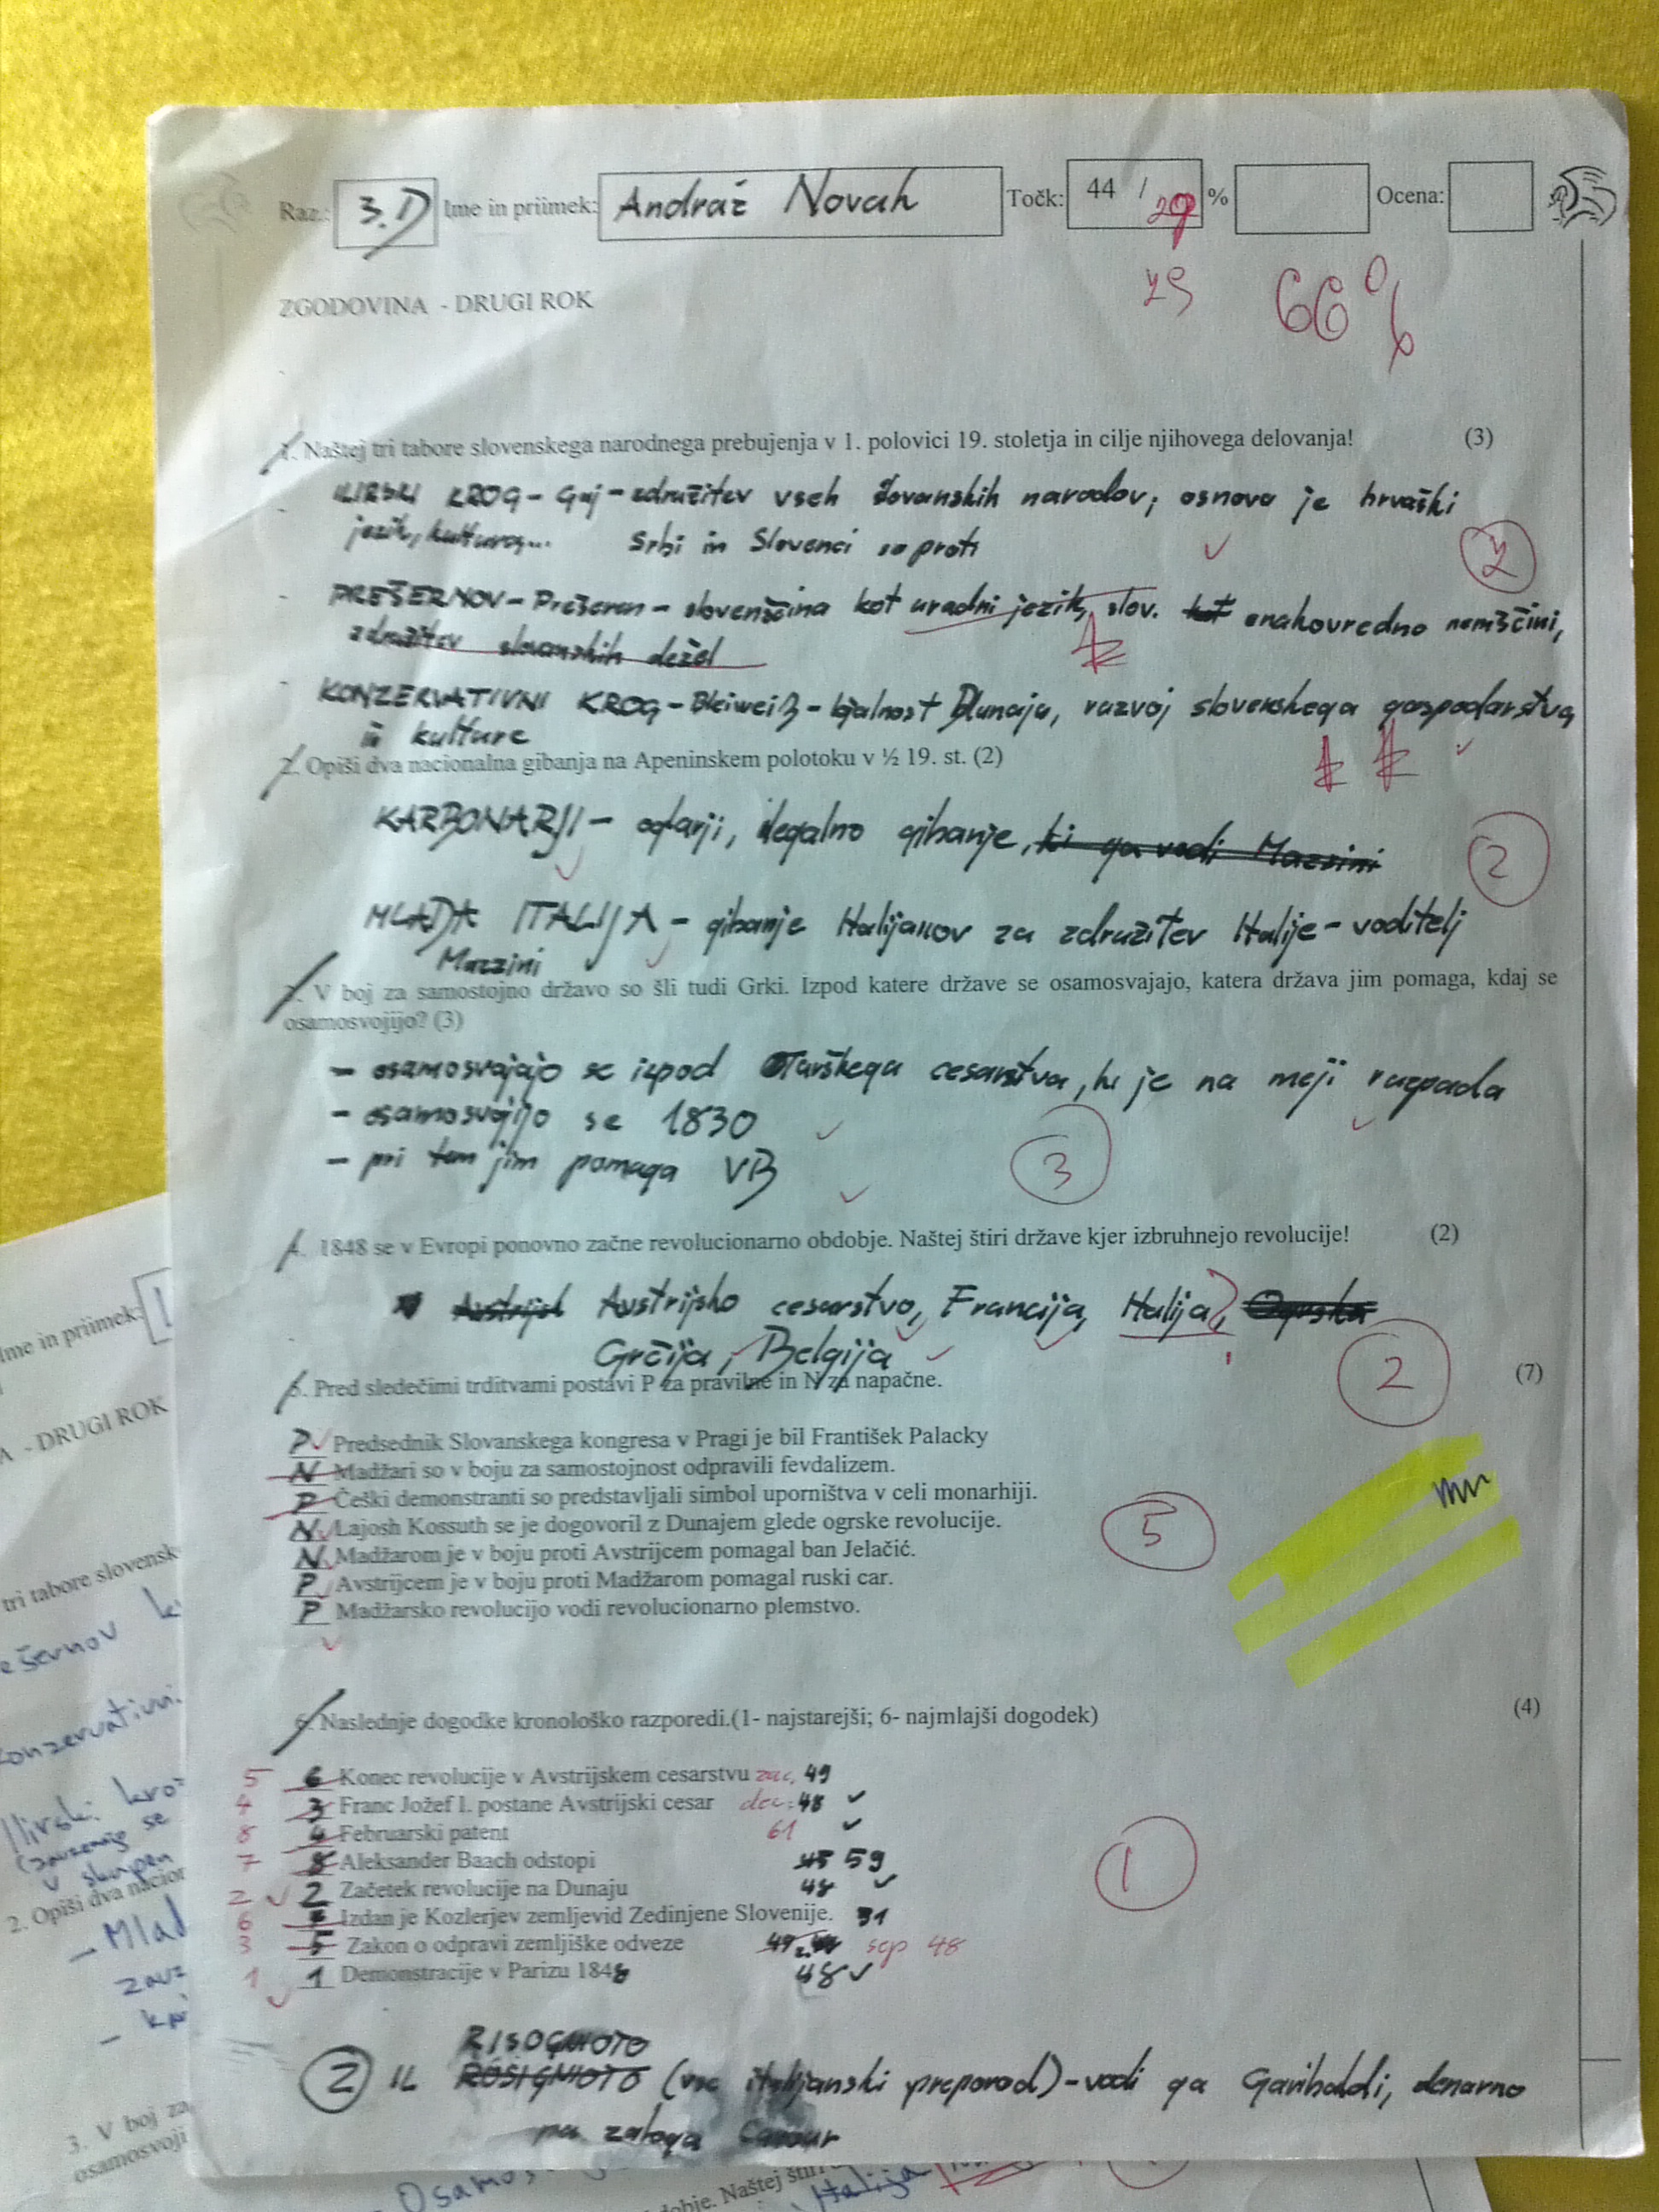 Raz.: 3.D Ime in priimek: Andraž Novak Točk: 44 / 29 % Ocena:
29 66%
ZGODOVINA - DRUGI ROK
1. Naštej tri tabore slovenskega narodnega prebujenja v 1. polovici 19. stoletja in cilje njihovega delovanja! (3)
ILIRSKI KROG - Gaj - združitev vseh slovanskih narodov; osnova je hrvaški
jezik, kultura... Srbi in Slovenci so proti
2
PREŠERNOV - Prešeren - slovenščina kot uradni jezik, slov. enakovredno nemščini,
združitev slovanskih dežel
KONZERVATIVNI KROG - Bleiweiß - lojalnost Dunaju, razvoj slovenskega gospodarstva
in kulture
2. Opiši dva nacionalna gibanja na Apeninskem polotoku v ½ 19. st. (2)
KARBONARJI - oglarji, ilegalno gibanje, ki ga vodi Mazzini
2
MLADA ITALIJA - gibanje Italijanov za združitev Italije - voditelj
Mazzini
3. V boj za samostojno državo so šli tudi Grki. Izpod katere države se osamosvajajo, katera država jim pomaga, kdaj se
osamosvojijo? (3)
- osamosvajajo se izpod Turškega cesarstva, ki je na meji razpada
- osamosvojijo se 1830
- pri tem jim pomaga VB
3
4. 1848 se v Evropi ponovno začne revolucionarno obdobje. Naštej štiri države kjer izbruhnejo revolucije! (2)
Avstrijsko cesarstvo, Francija, Italija, Ogrska
Grčija, Belgija
2
5. Pred sledečimi trditvami postavi P za pravilne in N za napačne. (7)
P Predsednik Slovanskega kongresa v Pragi je bil František Palacky
N Madžari so v boju za samostojnost odpravili fevdalizem.
P Češki demonstranti so predstavljali simbol uporništva v celi monarhiji.
N Lajosh Kossuth se je dogovoril z Dunajem glede ogrske revolucije.
5
N Madžarom je v boju proti Avstrijcem pomagal ban Jelačić.
P Avstrijcem je v boju proti Madžarom pomagal ruski car.
P Madžarsko revolucijo vodi revolucionarno plemstvo.
6. Naslednje dogodke kronološko razporedi.(1- najstarejši; 6- najmlajši dogodek) (4)
5 6 Konec revolucije v Avstrijskem cesarstvu 49
4 3 Franc Jožef I. postane Avstrijski cesar dec. 48
8 4 Februarski patent 61
7 8 Aleksander Baach odstopi 59
1
2 2 Začetek revolucije na Dunaju 48
6 Izdan je Kozlerjev zemljevid Zedinjene Slovenije.
3 5 Zakon o odpravi zemljiške odveze sep 48
1 1 Demonstracije v Parizu 1848 48
RISOGMOTO
2 IL ROSIGMOTO (vse italijanski preporod) - vodi ga Garibaldi, denarno
pa zalaga Cavour
Ime in priimek:
- DRUGI ROK
tri tabore slovensk
Konzervativni
2. Opiši dva nacion
- Mlad
3. V boj za
osamosvoji
Naštej štiri